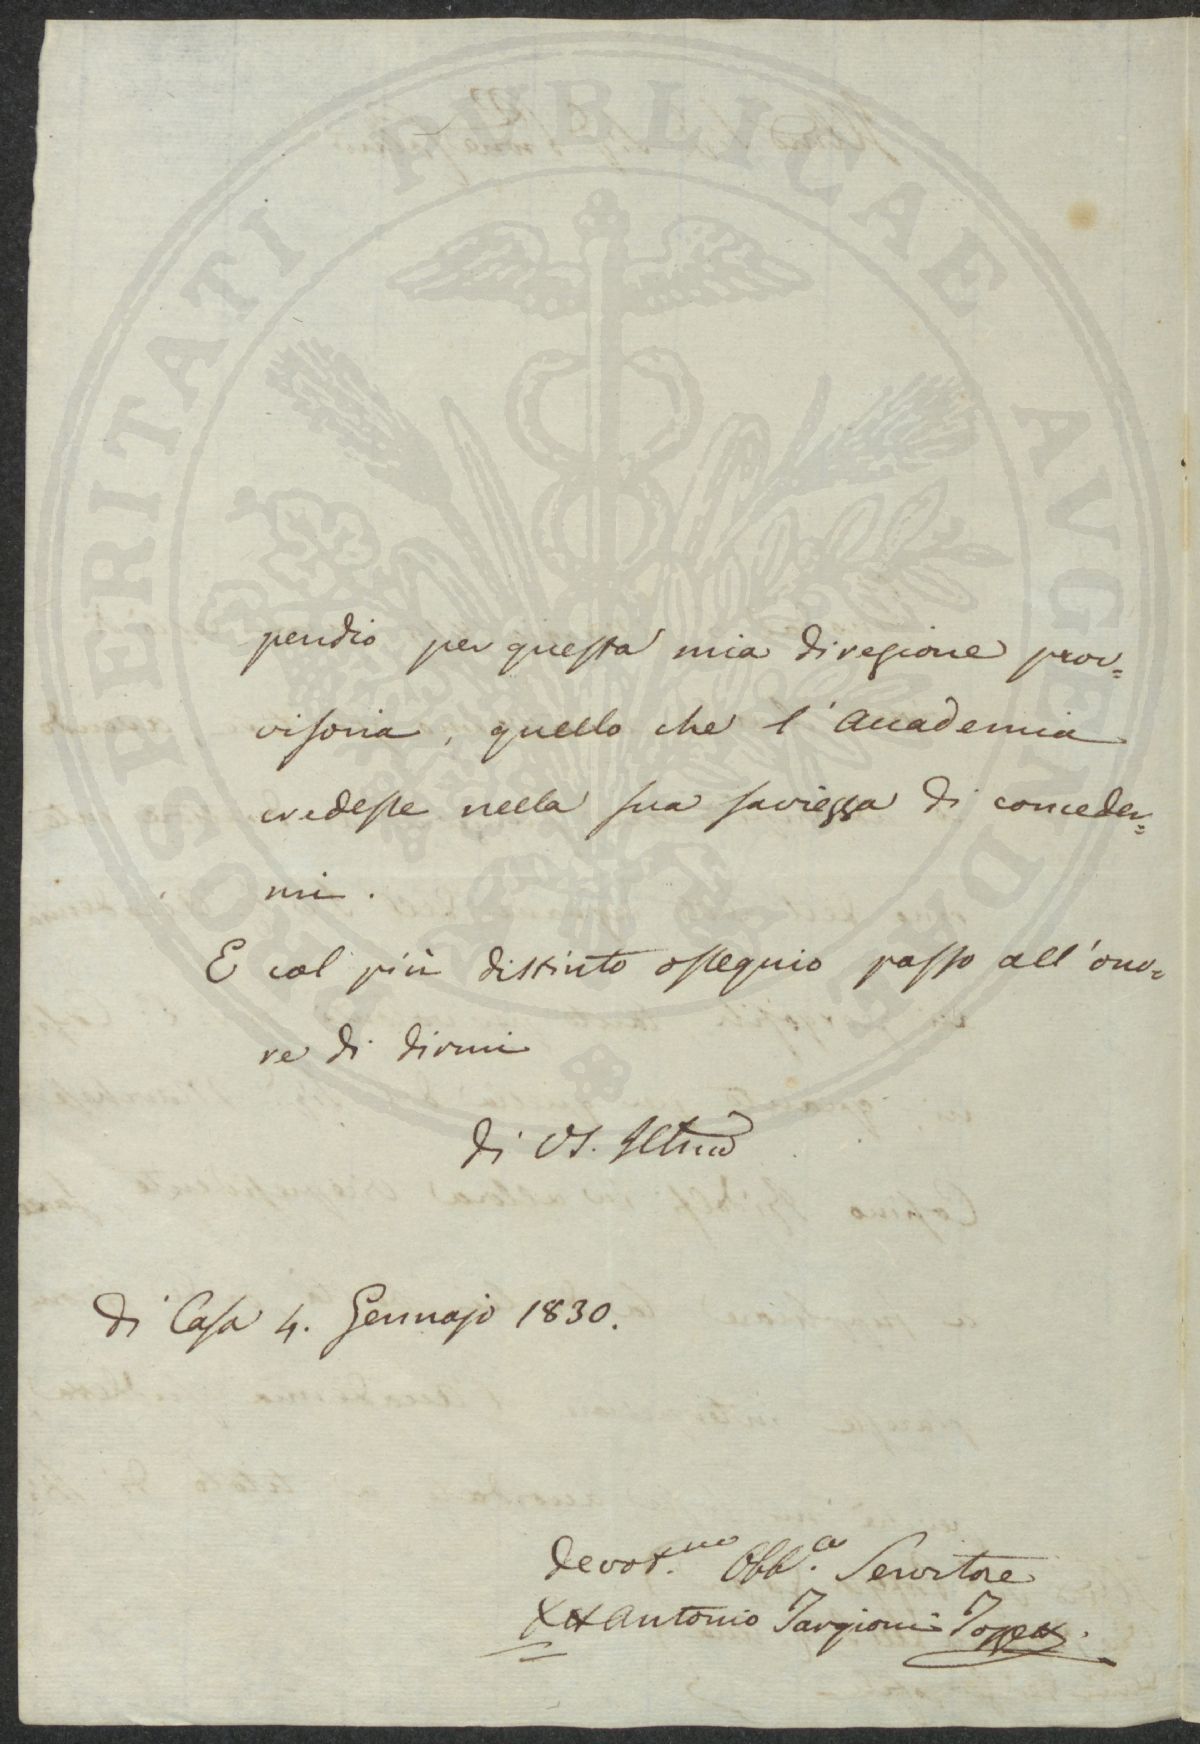 PROSPERITATI PUBLICAE AVGENDAE
pendio per questa mia direzione prov=
visoria, quello che l'Accademia
credesse nella sua saviezza di conceder=
mi.
E col più distinto ossequio passo all'ono=
re di dirmi
di VS. Illma
di Casa 4. Gennajo 1830.
Devot.mo Obb.o Servitore
Antonio Targioni Tozzetti.